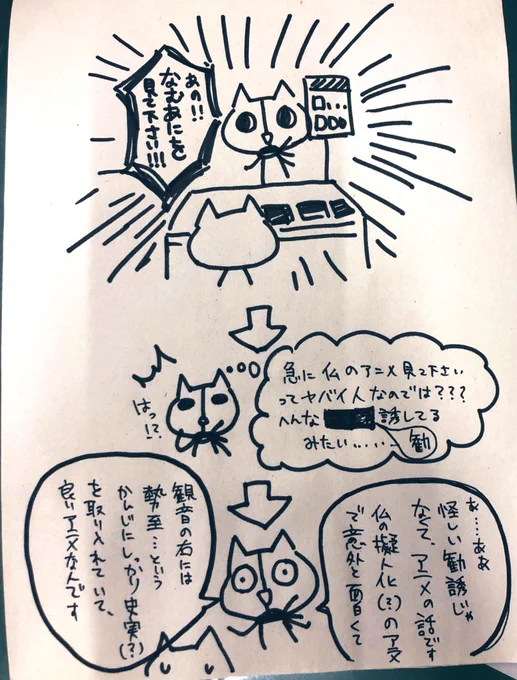 あの!!
なむあにを
見て下さい!!!
急に 仏のアニメ見て下さい
ってヤバイ人なのでは???
へんな 誘してる
みたい......
勧
はっ!?
あ...ああ
怪しい勧誘じゃ
なくて、アニメの話です
仏の擬人化(?)のアニメ
で意外と面白くて
観音の右には
勢至...という
かんじにしっかり史実(?)
を取り入れていて、
良いアニメなんです